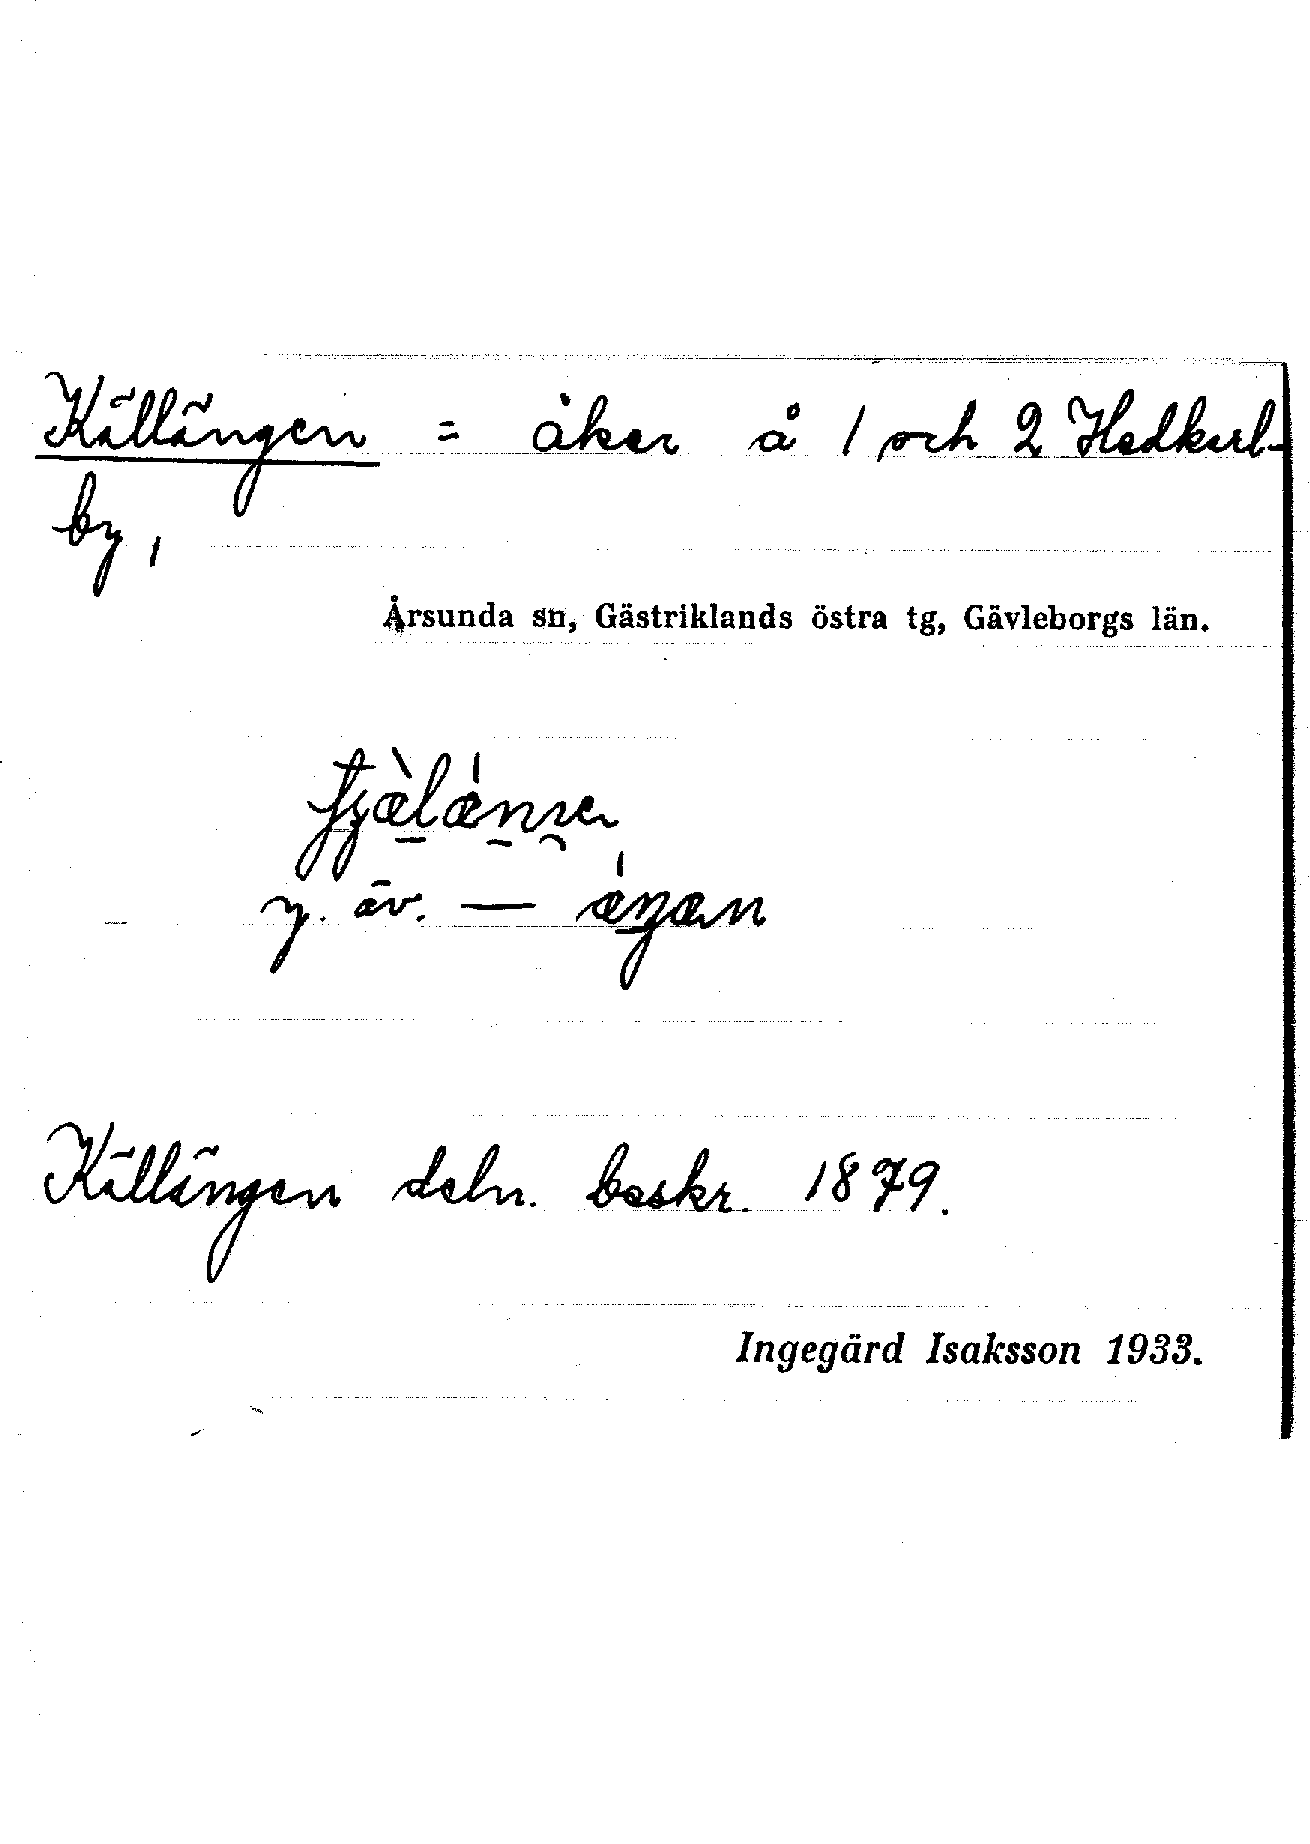 Källängen = åker å 1 och 2 Hedkarl-
by,
Årsunda sn, Gästriklands östra tg, Gävleborgs län.
y. äv. —
Källängen deln. beskr. 1879.
Ingegärd Isaksson 1933.